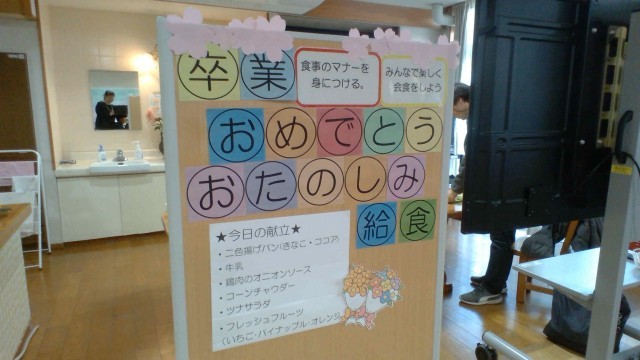 卒業
食事のマナーを
身につける。
みんなで楽しく
会食をしよう
おめでとう
おたのしみ
給食
★今日の献立★
・二色揚げパン(きなこ・ココア)
・牛乳
・鶏肉のオニオンソース
・コーンチャウダー
・ツナサラダ
・フレッシュフルーツ
(いちご・パイナップル・オレンジ)